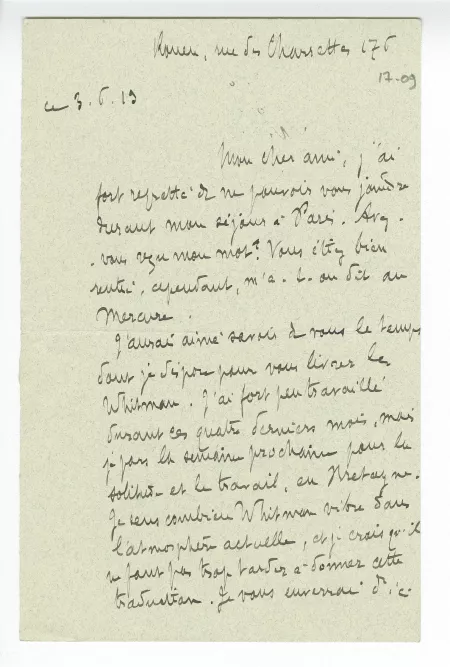 Rouen, rue des Charrettes 176
17-09
ce 3. 6. 19
Mon cher ami, j'ai
fort regretté de ne pouvoir vous joindre
durant mon séjour à Paris. Avez-
-vous reçu mon mot? Vous étiez bien
rentré, cependant, m'a-t-on dit au
Mercure.
J'aurais aimé savoir de vous le temps
dont je dispose pour vous livrer le
Whitman. J'ai fort peu travaillé
durant ces quatre derniers mois, mais
je pars la semaine prochaine pour la
solitude et le travail, en Bretagne.
Je sens combien Whitman vibre dans
l'atmosphère actuelle, et je crois qu'il
ne faut pas trop tarder à donner cette
traduction. Je vous enverrai d'ic